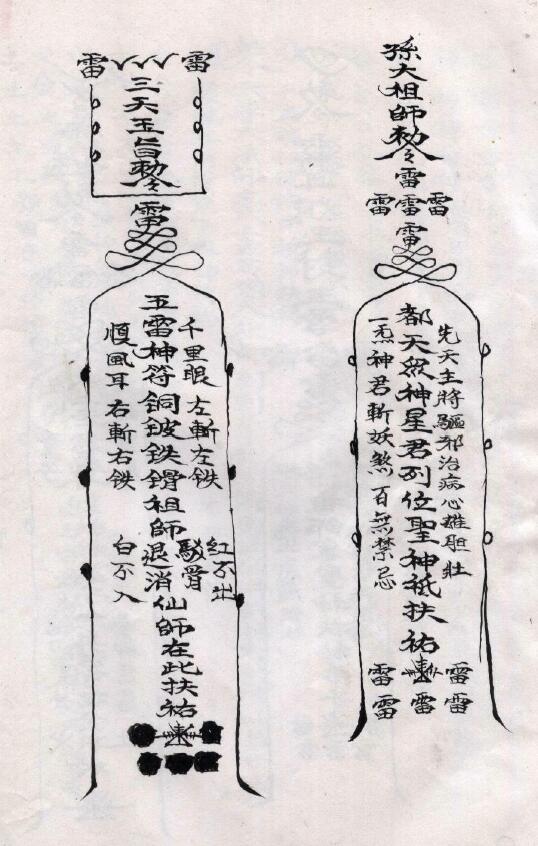 孫大祖師勅令
雷
雷雷雷
雷
先天主將驅邪治病心雄胆壮
都天眾神星君列位聖神祇扶祐
一炁神君斬妖煞百無禁忌
雷雷
雷雷雷
雷雷
三天玉旨勅令
雷
千里眼左斬左鉄
紅不出
五雷神符铜鈹鉄鎖祖師退消仙師在此扶祐
駁骨
順風耳右斬右鉄
白不入